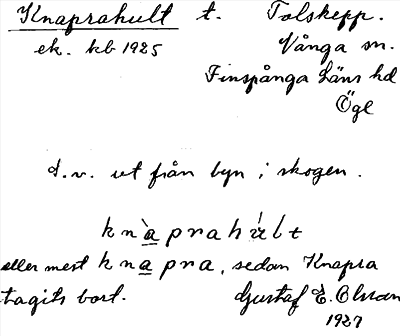 Knaprahult t. Tolskepp.
ek. kb 1925 Vånga sn.
Finspånga Läns hd
Ögl
d.v. ut från byn i skogen.
knàprahúlt
eller mest knapra, sedan Knapra
tagits bort. Gustaf E. Olsson
1927